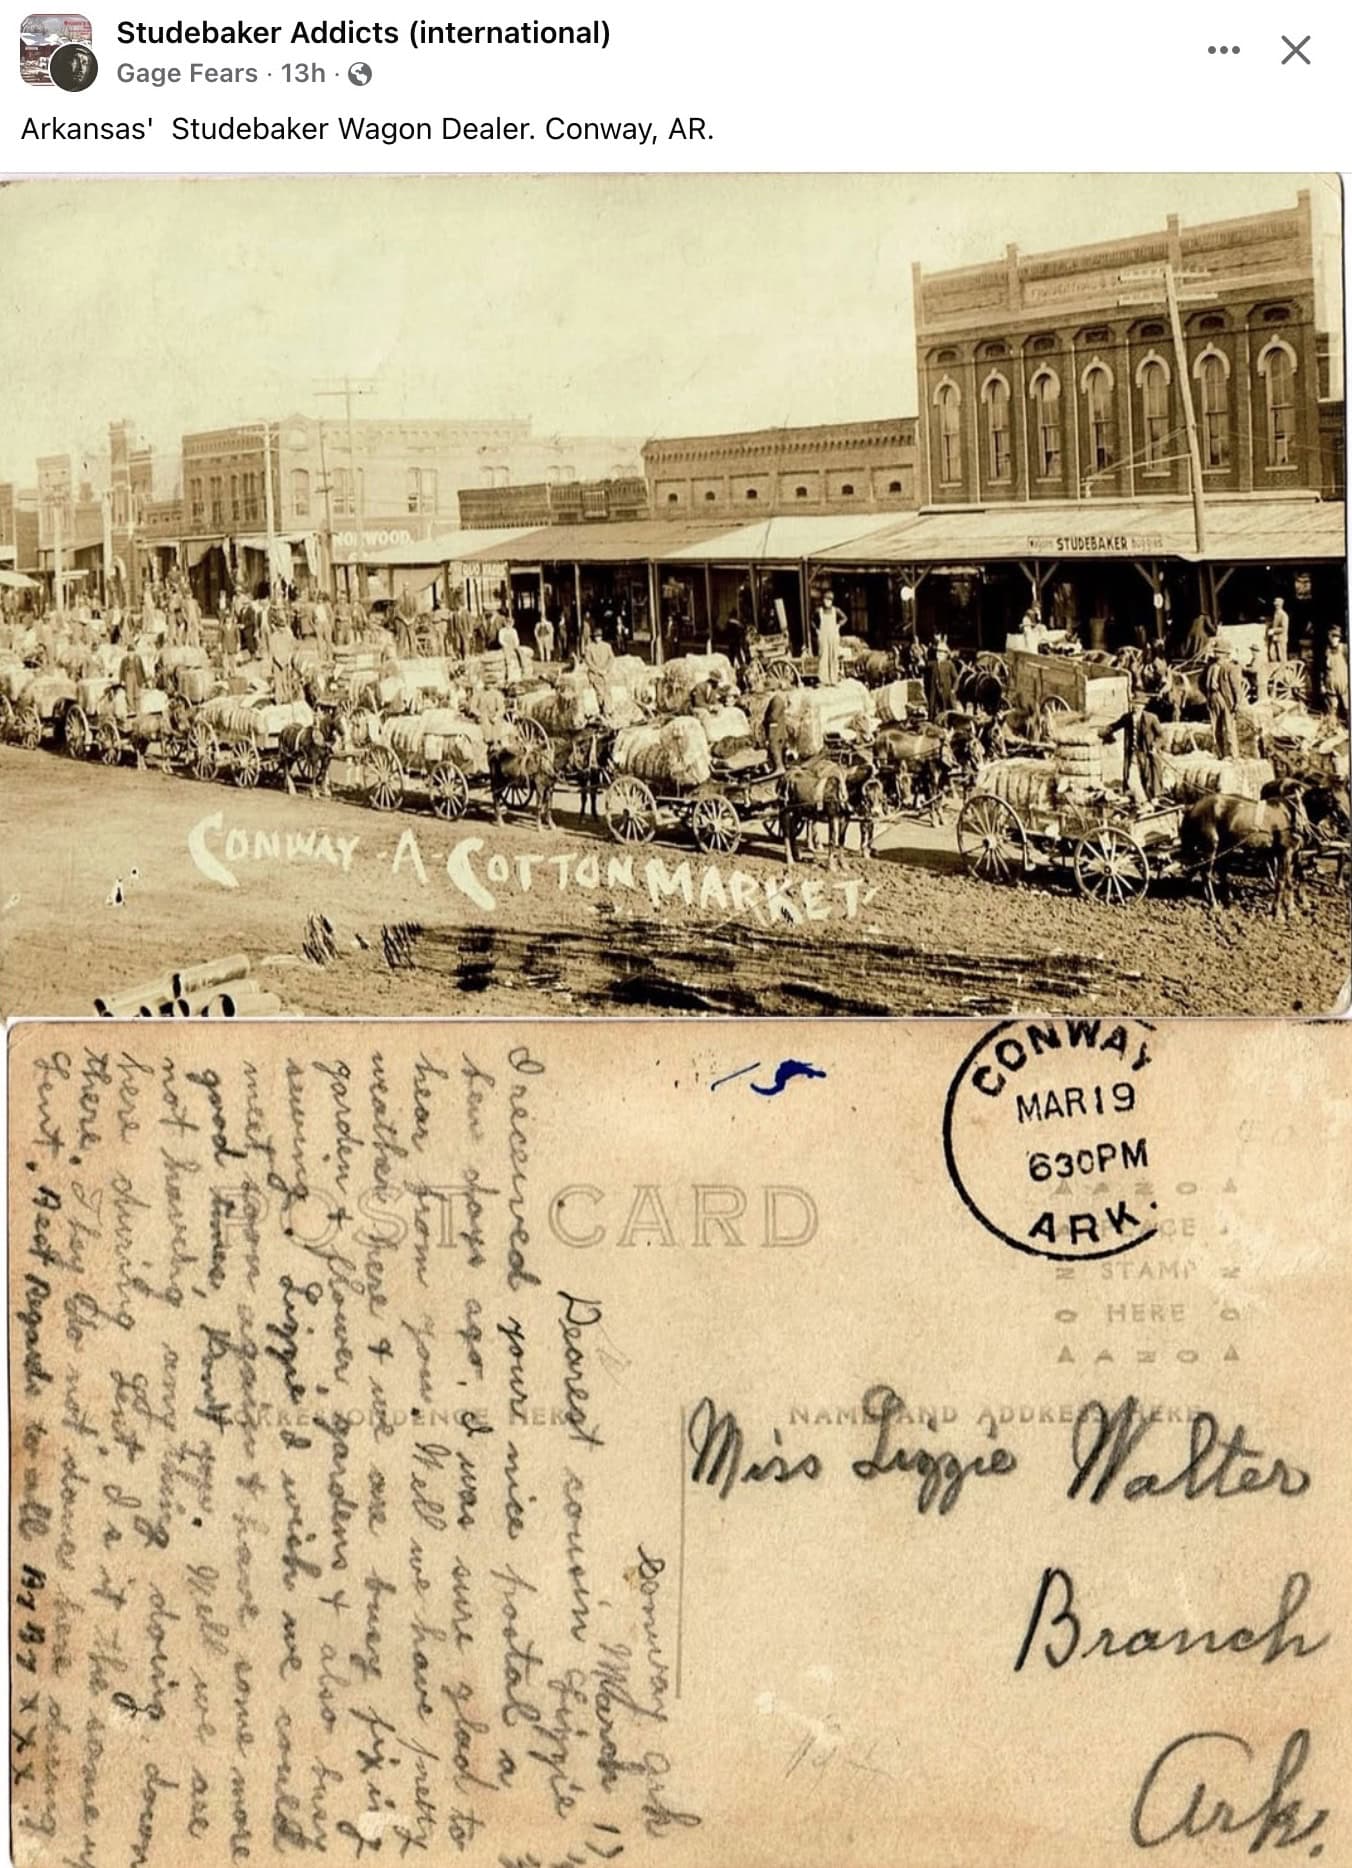 Studebaker Addicts (international)
Gage Fears · 13h ·
Arkansas' Studebaker Wagon Dealer. Conway, AR.
NORWOOD.
STUDEBAKER
CONWAY-A-COTTON MARKET
CONWAY
MAR 19
630PM
ARK.
POST CARD
STAMP
HERE
AZOA
CORRESPONDENCE HERE
NAME AND ADDRESS HERE
Conway Ark
March
Dearest cousin Lizzie
I received your nice postal a
few days ago. I was sure glad to
hear from you. Well we have pretty
weather here & we are busy fixing
garden & flower gardens & also busy
sewing. Lizzie I wish we could
meet soon again & have some more
good times, Dont you. Well we are
not haveing any thing doing down
here during Lent. Is it the same up
there. They do not dance here during
Lent. Best Regards to all By By x x x
Miss Lizzie Walter
Branch
Ark.